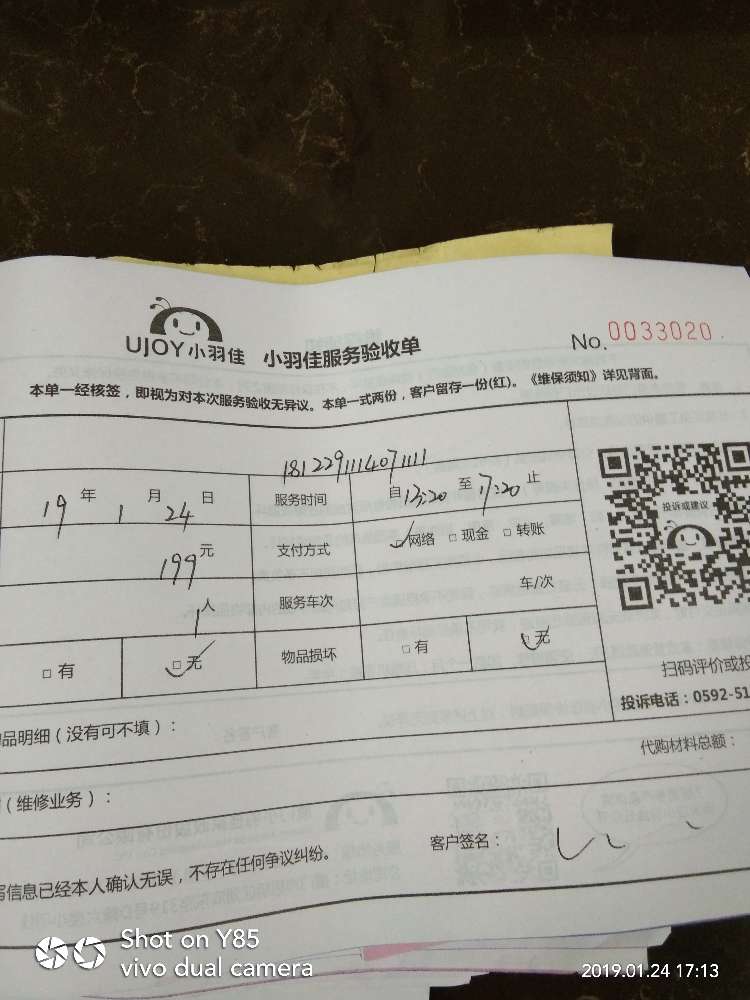 UJOY小羽佳 小羽佳服务验收单 No. 0033020
本单一经核签，即视为对本次服务验收无异议。本单一式两份，客户留存一份(红)。《维保须知》详见背面。
1812291114071111
19 年 1 月 24 日 服务时间 自 13:20 至 17:20 止
投诉或建议
199 元 支付方式 网络 □ 现金 □ 转账
1 人 服务车次 车/次
□ 有 □ 无 物品损坏 □ 有 □ 无
扫码评价或投
投诉电话：0592-51
品明细（没有可不填）：
代购材料总额：
（维修业务）：
客户签名：
写信息已经本人确认无误，不存在任何争议纠纷。
Shot on Y85
vivo dual camera
2019.01.24 17:13